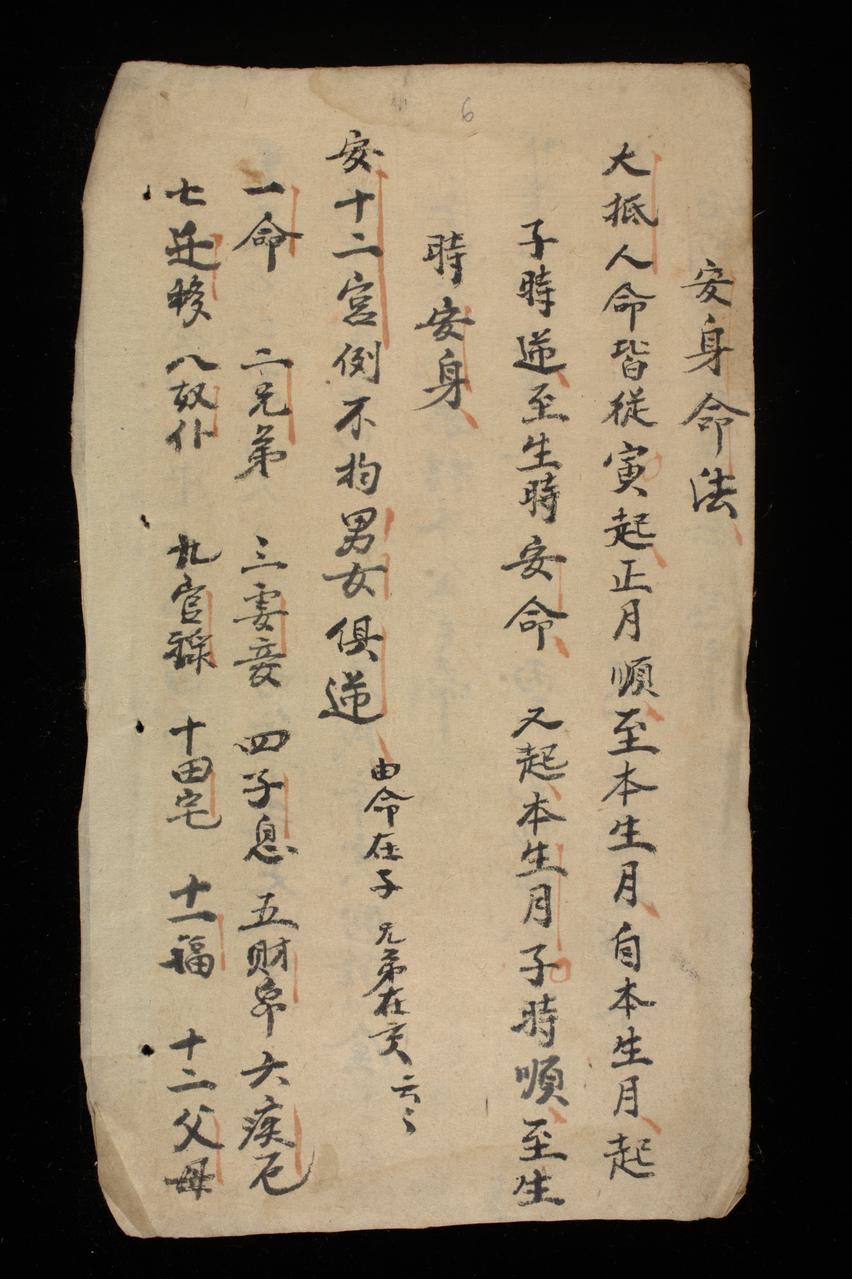 6
安身命法
大抵人命皆從寅起正月順至本生月自本生月起
子時逆至生時安命 又起本生月子時順至生
時安身
安十二宮例不拘男女俱逆 由命在子 兄弟在亥 云〻
一命 二兄弟 三妻妾 四子息 五財帛 六疾厄
七迁移 八奴仆 九官祿 十田宅 十一福 十二父母